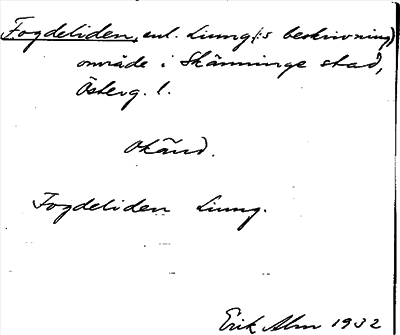 Fogdeliden, enl. Liung(:s beskrivning)
område i Skänninge stad,
Österg. l.
Okänd.
Fogdeliden Liung.
Erik Alm 1932